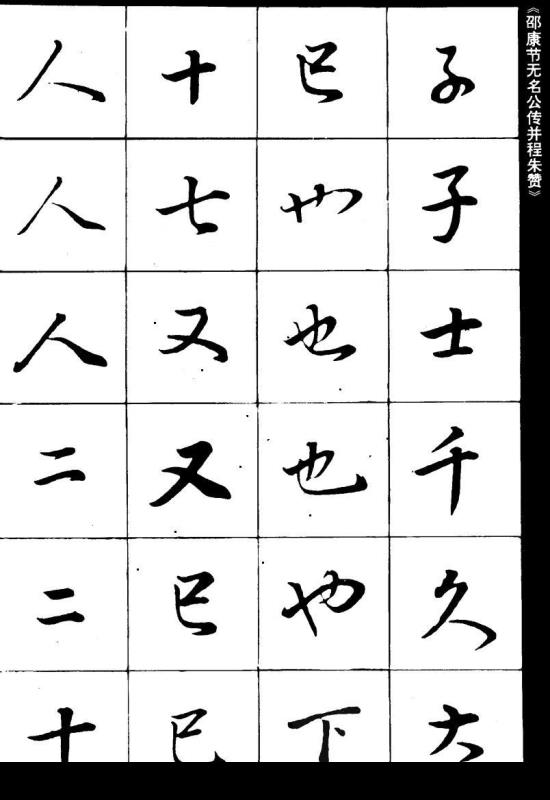 人人人二二十
十七又又已已
已也也也也下
子子士千久大
《邵康节无名公传并程朱赞》